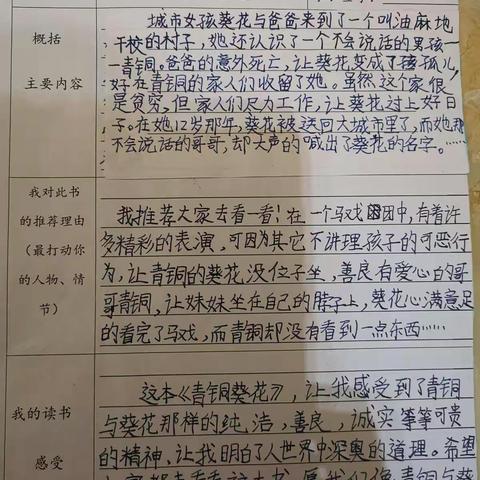 概括
主要内容
城市女孩葵花与爸爸来到了一个叫油麻地
干校的村子，她还认识了一个不会说话的男孩一
一青铜。爸爸的意外死亡，让葵花变成了孩孤儿，
好在青铜的家人们收留了她。虽然这个家很
是贫穷，但家人们尽力工作，让葵花过上好日
子。在她12岁那年，葵花被送回大城市里了，而她那
不会说话的哥哥，却大声的喊出了葵花的名字。……
我对此书
的推荐理由
（最打动你
的人物、情
节）
我推荐大家去看一看！在一个马戏团中，有着许
多精彩的表演，可因为其它不讲理孩子的可恶行
为，让青铜的葵花没位子坐，善良有爱心的哥
哥青铜，让妹妹坐在自己的脖子上，葵花心满意足
的看完了马戏，而青铜却没有看到一点东西……
我的读书
感受
这本《青铜葵花》，让我感受到了青铜
与葵花那样的纯洁，善良，诚实等等可贵
的精神、让我明白了人世界中深奥的道理。希望